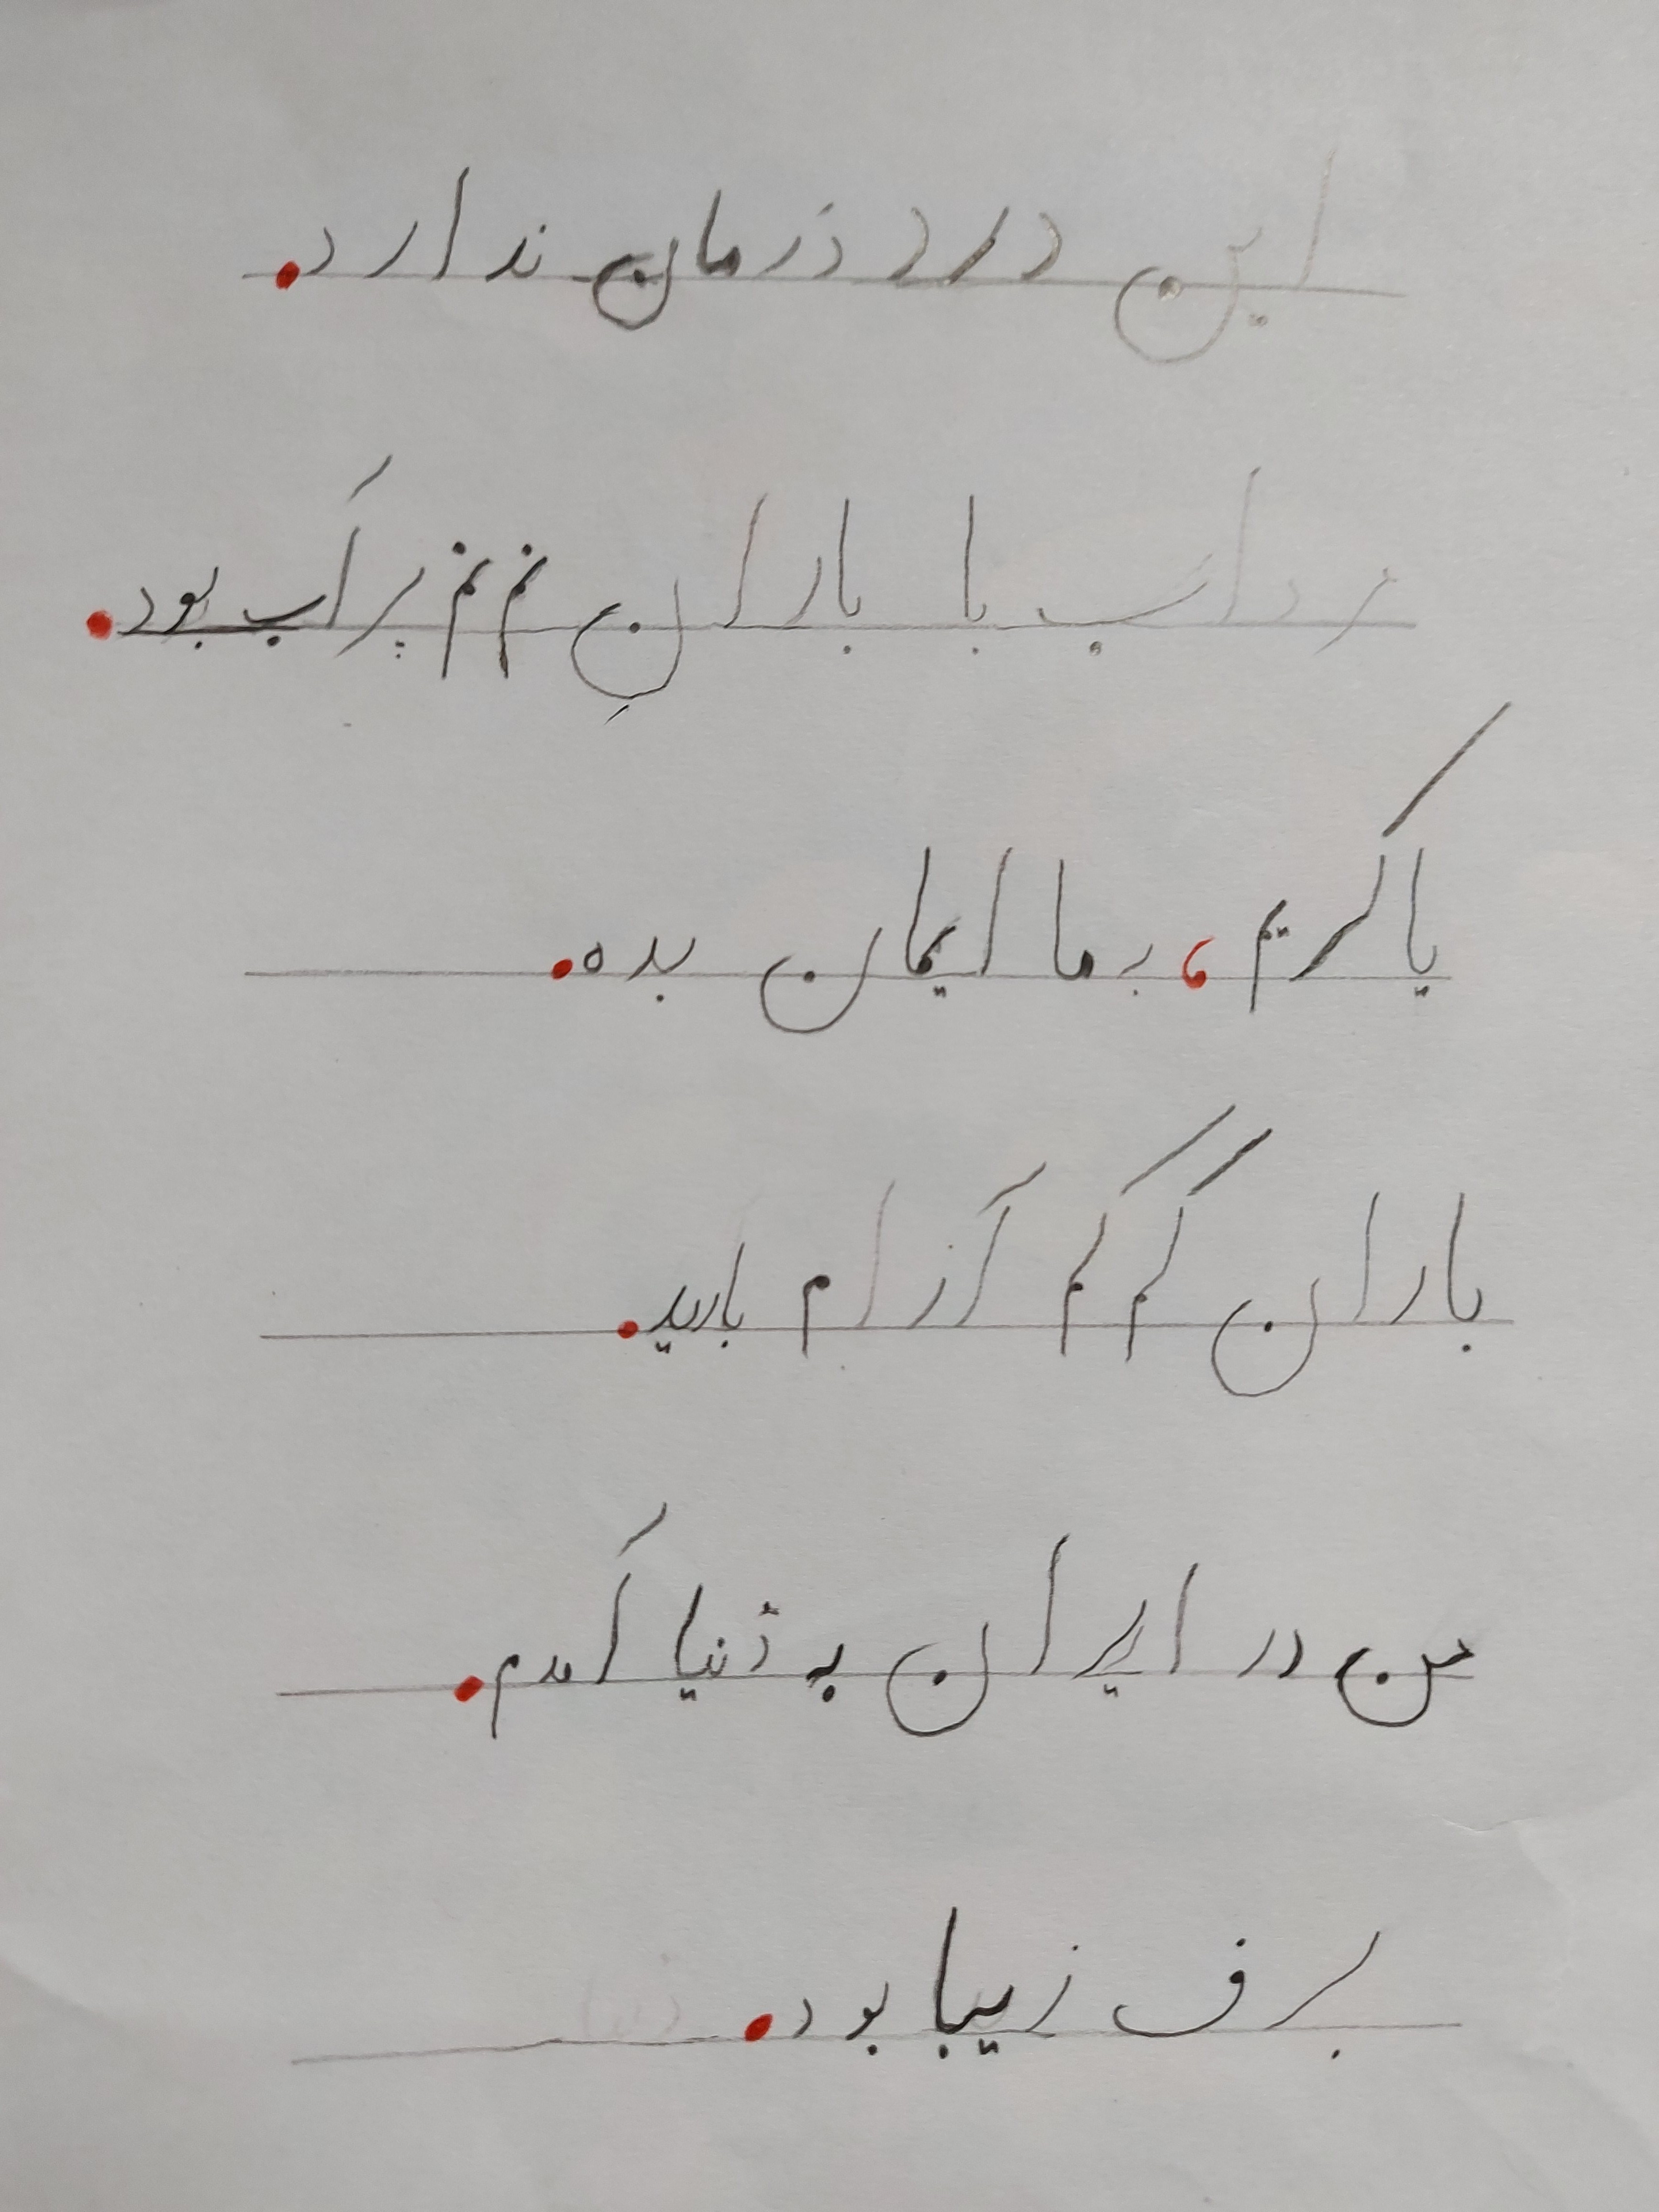 این درد دَرمان ندارد.
مرداب با بارانِ نم نم پر آب بود.
یا کریم، به ما ایمان بده.
باران کم کم آرام بارید.
من در ایران به دُنیا آمدم.
برف زیبا بود.